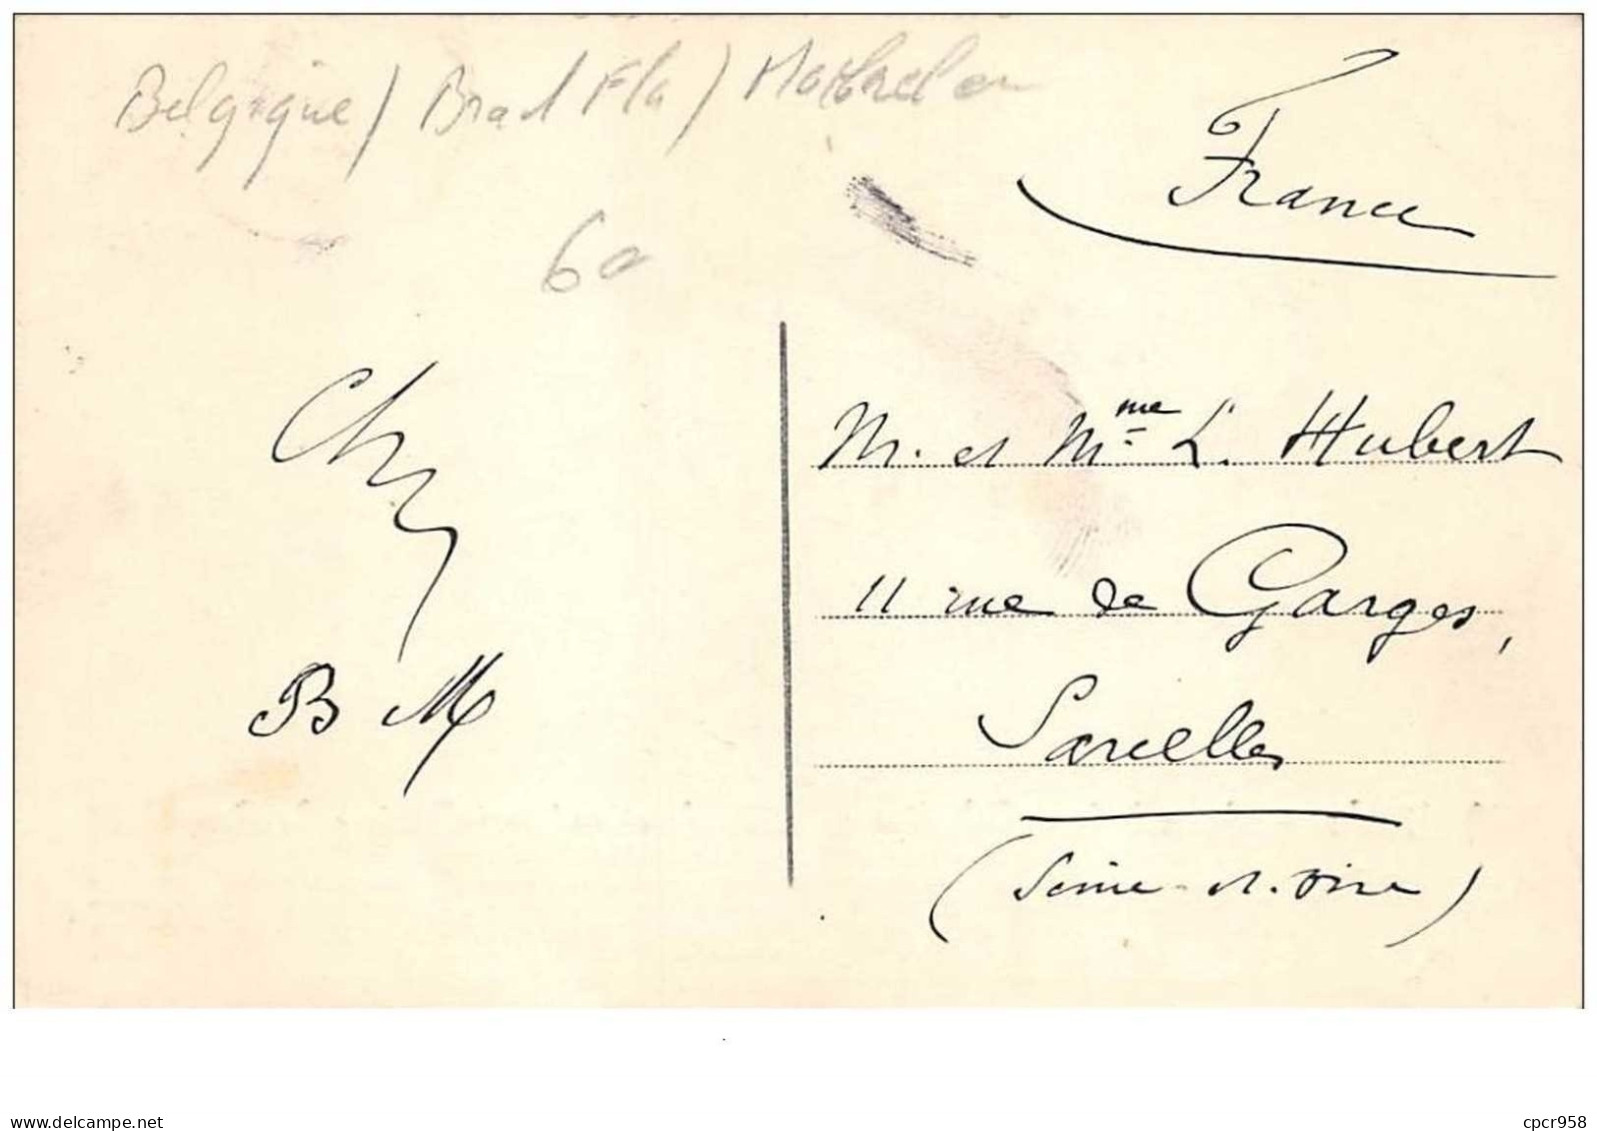 Belgique / Bra d Fla /
France
60
M. et Mme L. Hubert
11 rue de Garges,
Sarcelles
B M
(Seine-et-Oise)
delcampe.net
cpcr958